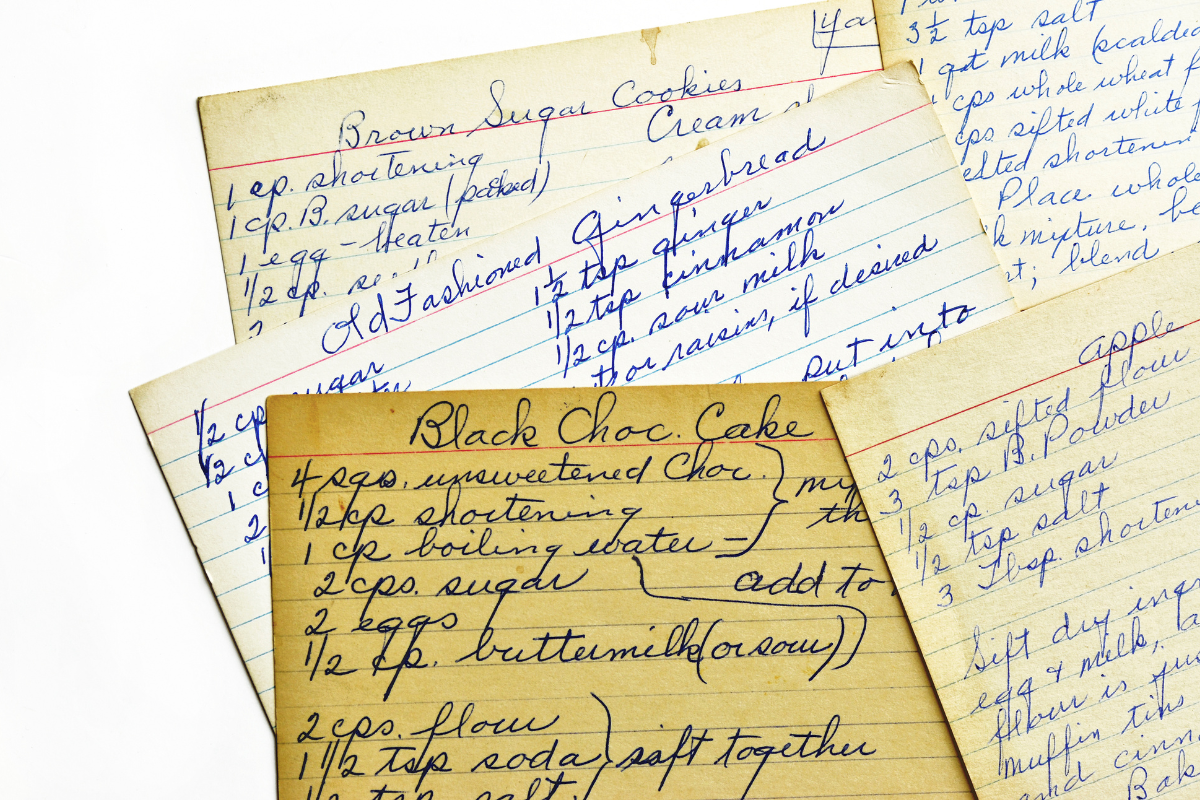 Brown Sugar Cookies
Cream
1 cp. shortening
1 cp. B. sugar (packed)
1 egg - beaten
1/2 cp.
3 1/2 tsp salt
1 qt milk (scalded
cps whole wheat
cps sifted white
shortenin
Place whole
mixture, be
blend
Old Fashioned Gingerbread
1/2 cp sugar
1/2
1
2
1 1/2 tsp ginger
1/2 tsp cinnamon
1/2 cp. sour milk
or raisins, if desired
put in to
Black Choc. Cake
4 sqs. unsweetened Choc.
1/2 cp shortening
1 cp boiling water -
add to
2 cps. sugar
2 eggs
1/2 cp. buttermilk (or sour)
2 cps. flour
1 1/2 tsp soda
sift together
1/2 tsp salt
apple
2 cps. sifted flour
3 tsp B. Powder
1/2 cp. sugar
1/2 tsp salt
3 Tbsp. shorten
Sift dry ingr
egg & milk,
flour is jus
muffin tins
and cinn
Bak